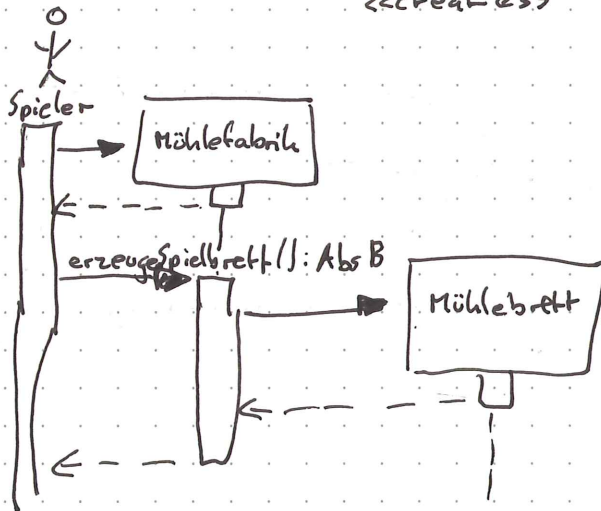 <<creates>>
Spieler
Mühlefabrik
erzeugeSpielbrett(): AbsB
Mühlebrett